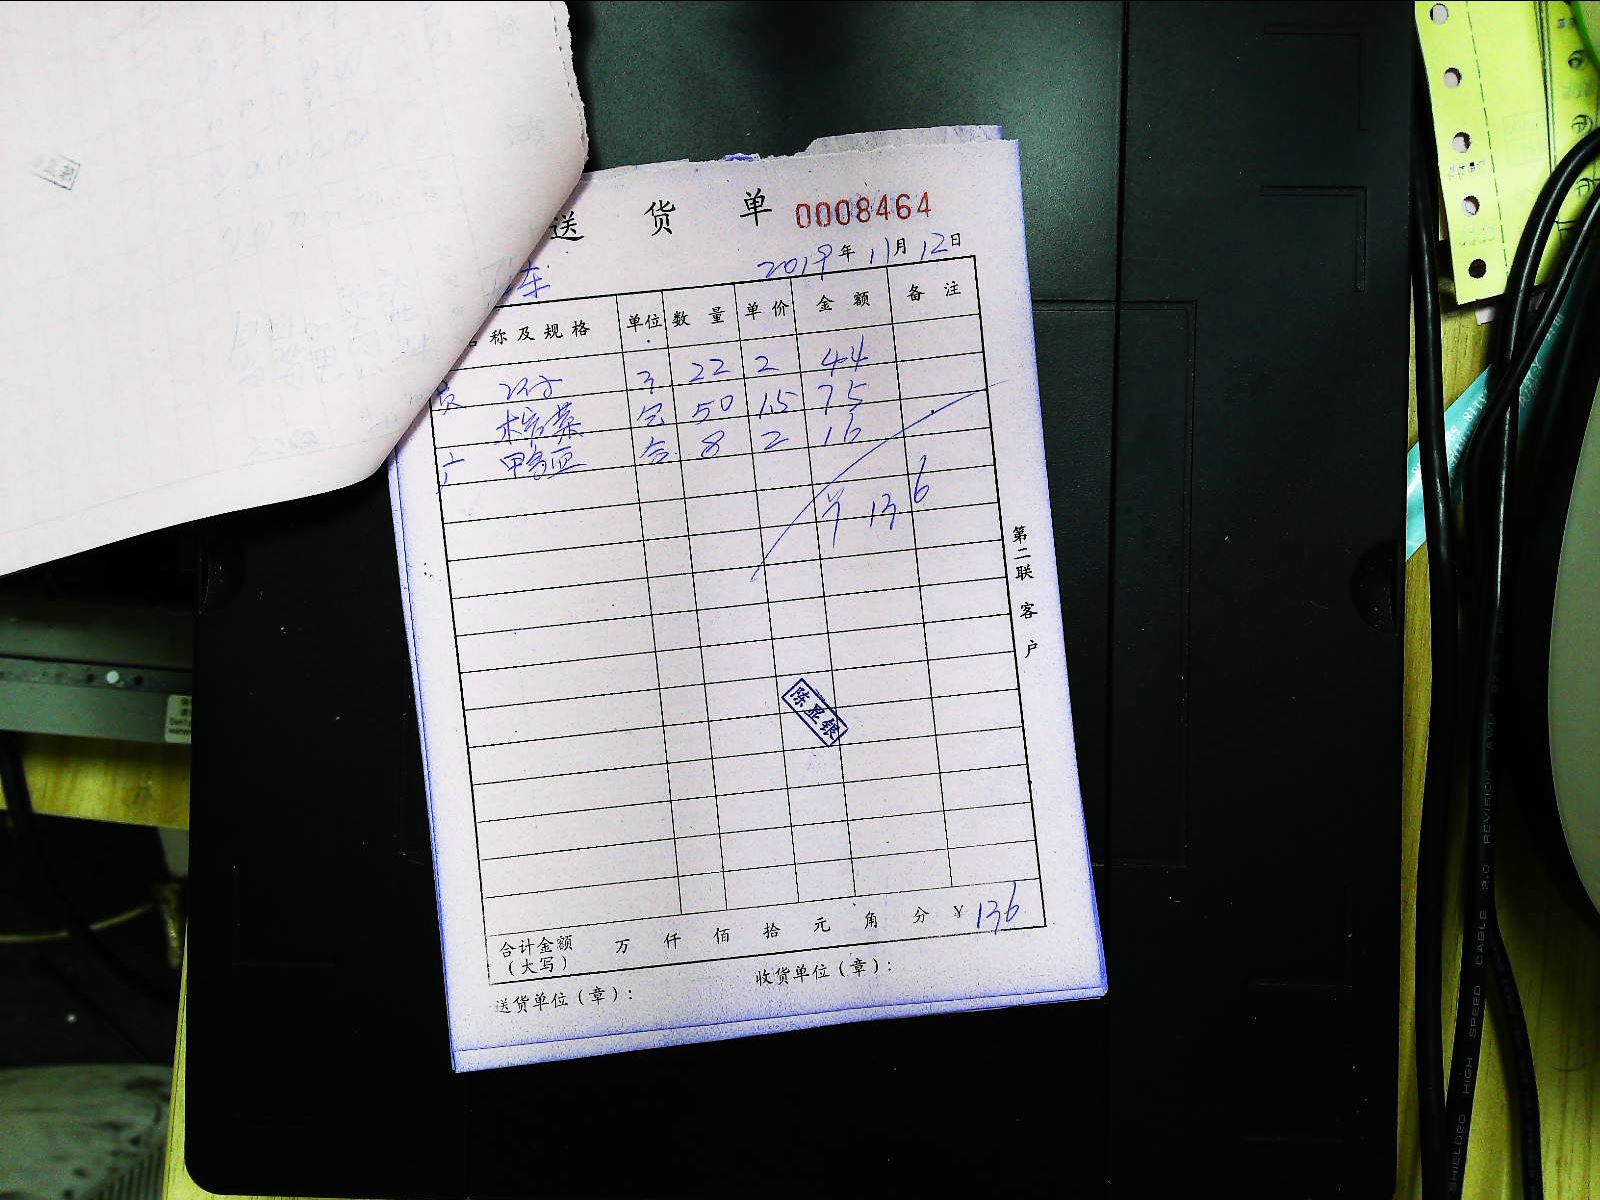 送 货 单 0008464
2019年11月12日
车
称及规格 单位 数量 单价 金额 备注
22 2 44
榨菜 包 50 1.5 75
合 8 2 16
¥ 136
第二联 客户
陈显银
合计金额（大写） 万 仟 佰 拾 元 角 分 ¥136
送货单位（章）： 收货单位（章）：
SHIELDED HIGH SPEED CABLE 2.0 REVISION AWM